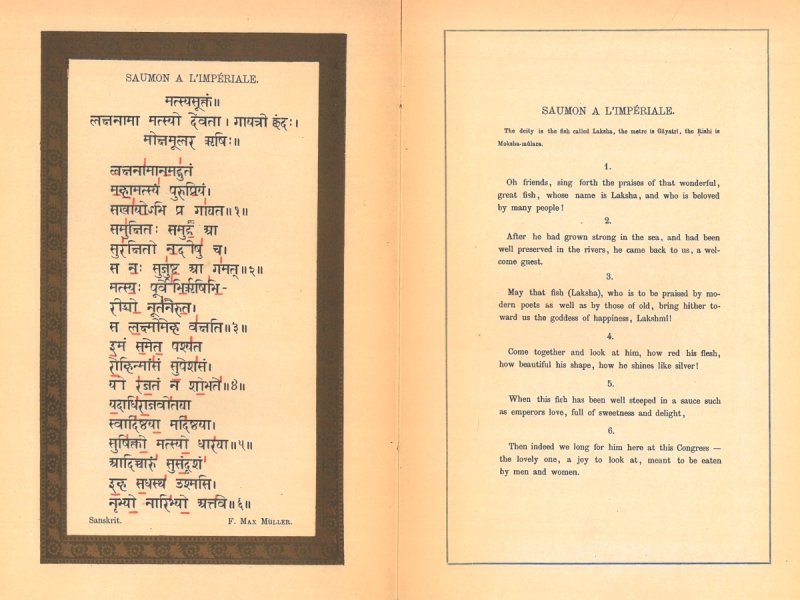 SAUMON A L'IMPÉRIALE.
मत्स्यसूक्तं॥
लक्षनामा मत्स्यो देवता। गायत्री छंदः।
मोक्षमूलर ऋषिः॥
लक्षनामानमद्भुतं
महामत्स्यं पुरुप्रियं।
सखायोऽभि प्र गायत॥१॥
समुक्षितः समुद्र आ
सुरक्षितो नदीषु च।
स नः सुजुष्ट आ गमत्॥२॥
मत्स्यः पूर्वेभिर्ऋषिभि-
रीड्यो नूतनैरुत।
स लक्ष्मीमेह वक्षति॥३॥
इमं समेत पश्यत
रोहिन्मांसं सुपेशसं।
यो रजतं न शोभते॥४॥
स्वादिष्ठया मदिष्ठया।
सुषिक्तो मत्स्यो धारया॥५॥
आदिच्चारुं सुसंदृशं
इह सधस्थ उश्मसि।
नृभ्यो नारिभ्यो अत्तवे॥६॥
Sanskrit. F. MAX MÜLLER.
SAUMON A L'IMPÉRIALE.
The deity is the fish called Laksha, the metre is Gâyatrî, the Rishi is
Moksha-mûlara.
1.
Oh friends, sing forth the praises of that wonderful,
great fish, whose name is Laksha, and who is beloved
by many people!
2.
After he had grown strong in the sea, and had been
well preserved in the rivers, he came back to us, a wel-
come guest.
3.
May that fish (Laksha), who is to be praised by mo-
dern poets as well as by those of old, bring hither to-
ward us the goddess of happiness, Lakshmî!
4.
Come together and look at him, how red his flesh,
how beautiful his shape, how he shines like silver!
5.
When this fish has been well steeped in a sauce such
as emperors love, full of sweetness and delight,
6.
Then indeed we long for him here at this Congress —
the lovely one, a joy to look at, meant to be eaten
by men and women.